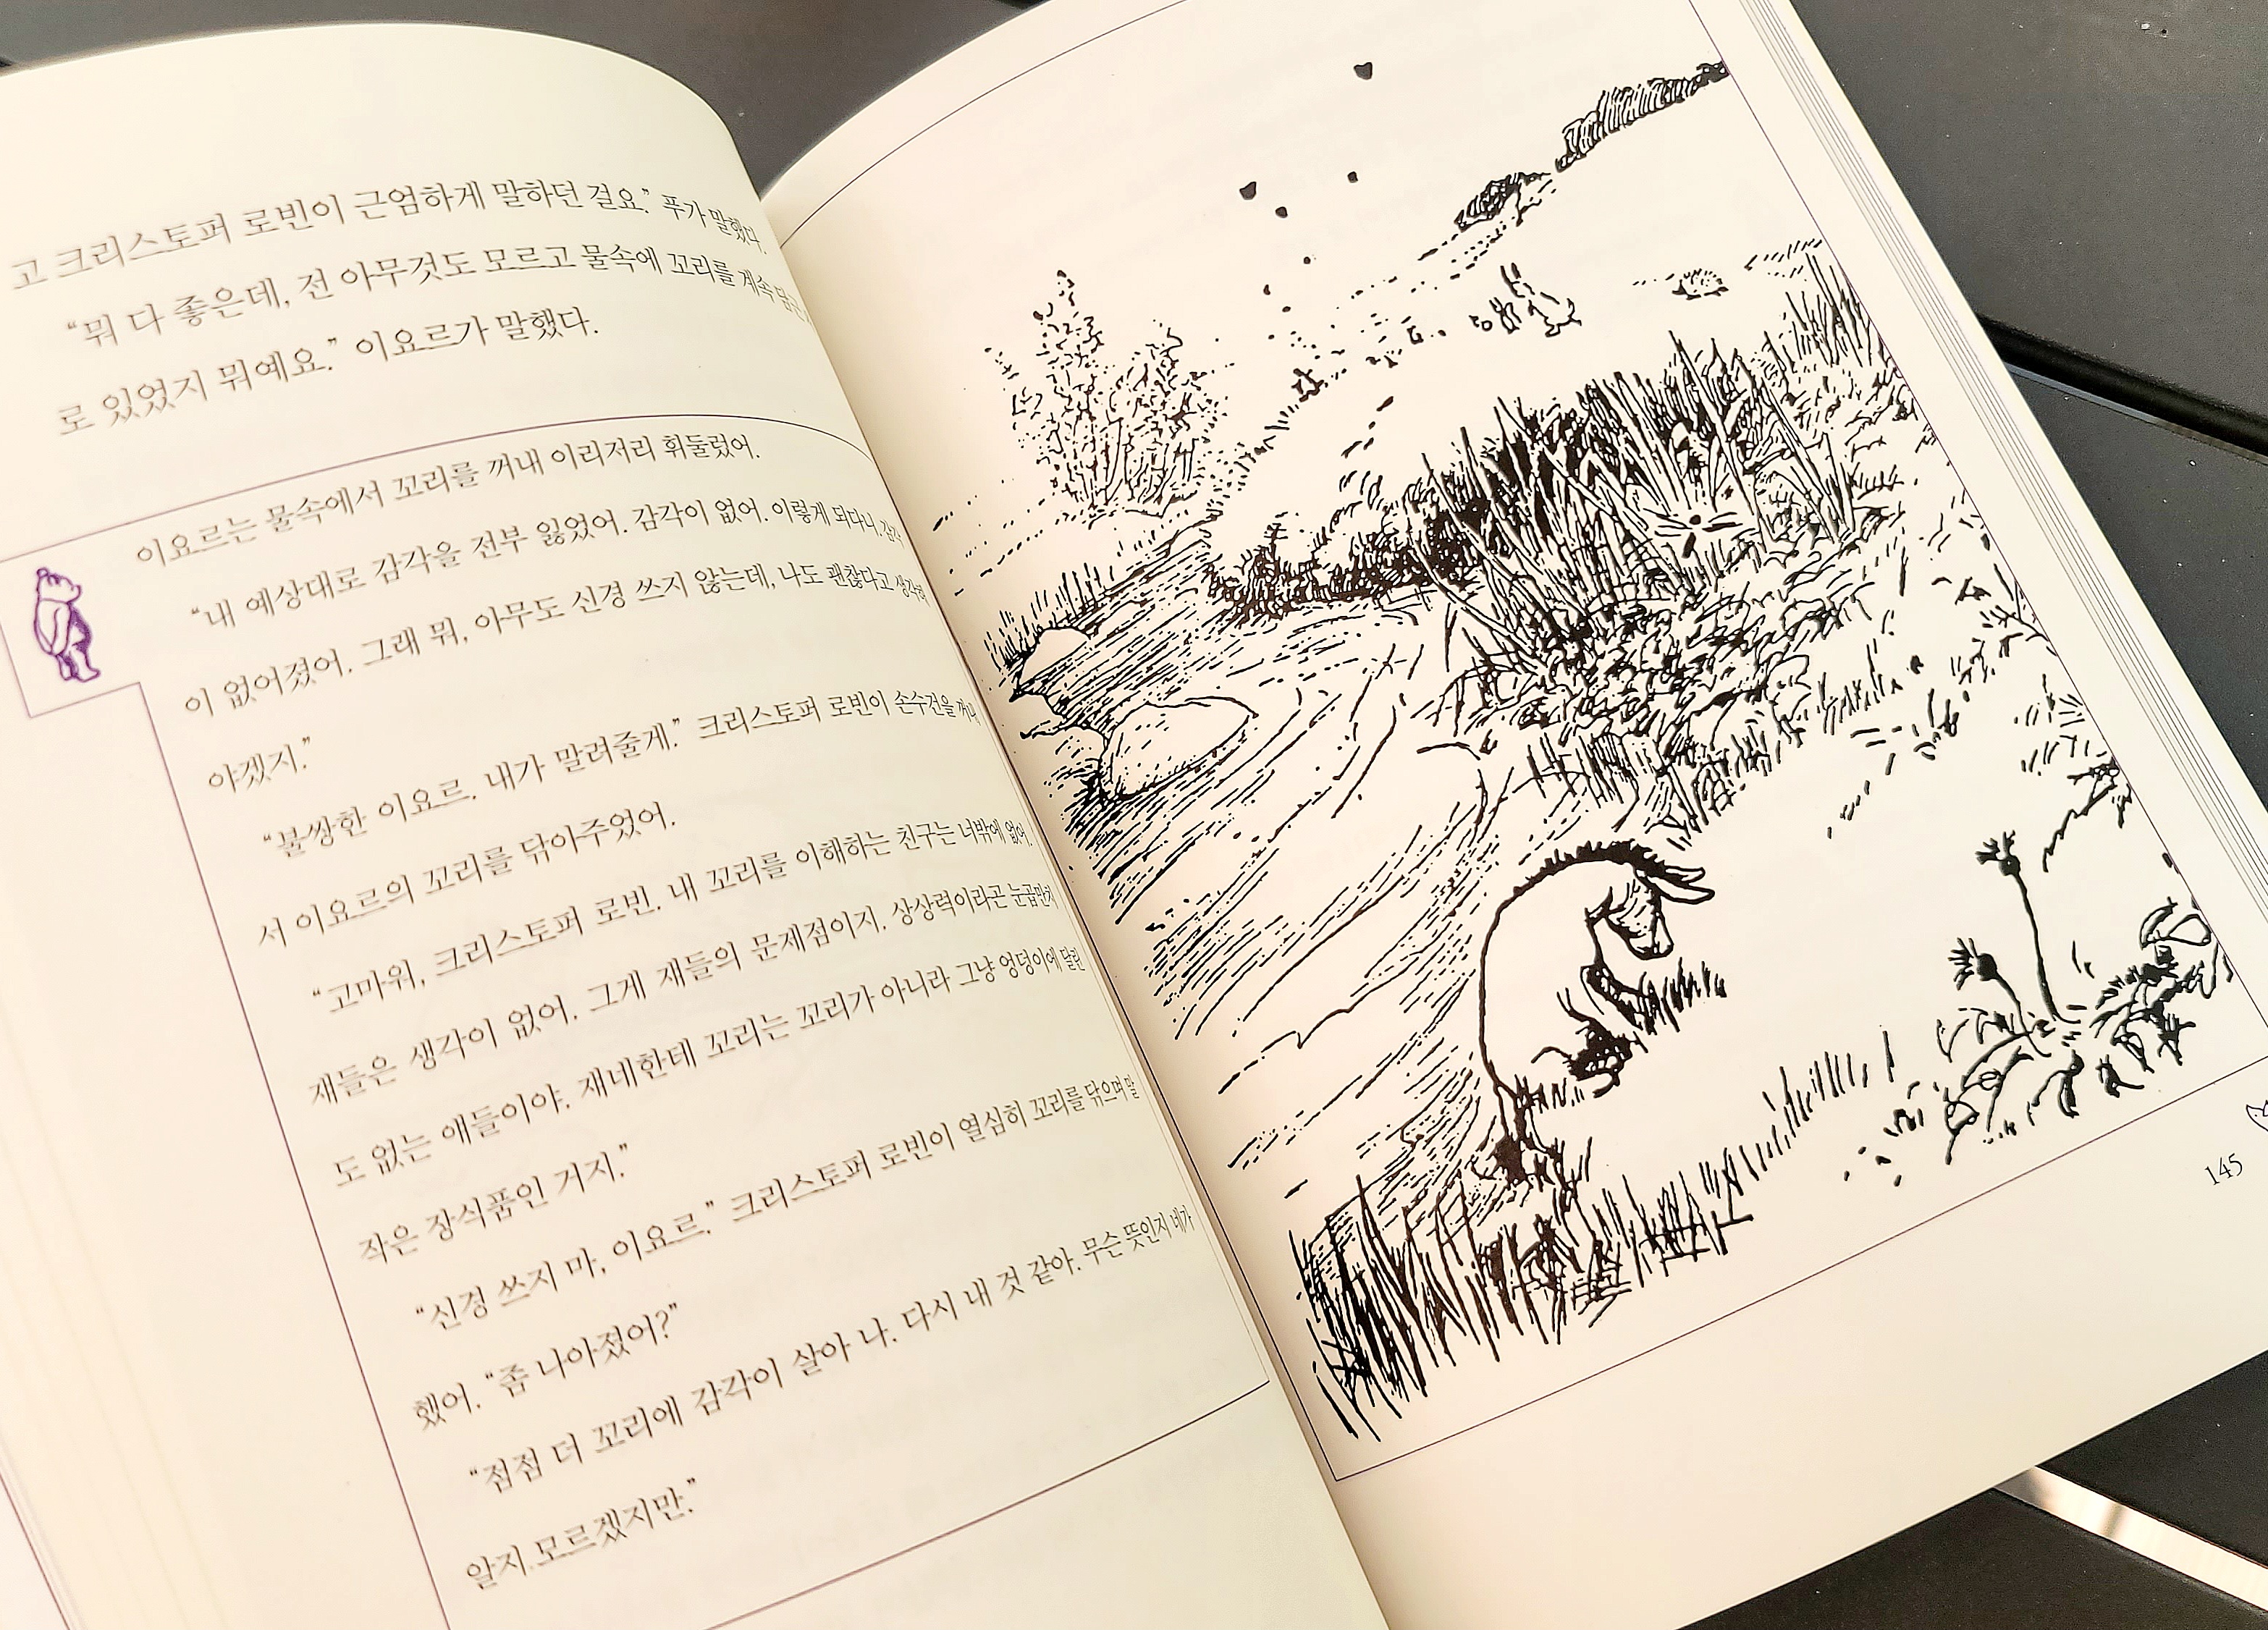 고 크리스토퍼 로빈이 근엄하게 말하던 걸요.” 푸가 말했다.
“뭐 다 좋은데, 전 아무것도 모르고 물속에 꼬리를 계속
로 있었지 뭐예요.” 이요르가 말했다.
이요르는 물속에서 꼬리를 꺼내 이리저리 휘둘렀어.
“내 예상대로 감각을 전부 잃었어. 감각이 없어. 이렇게 되다니, 감각
이 없어졌어. 그래 뭐, 아무도 신경 쓰지 않는데, 나도 괜찮다고 생각해
야겠지.”
“불쌍한 이요르. 내가 말려줄게.” 크리스토퍼 로빈이 손수건을 꺼내
서 이요르의 꼬리를 닦아주었어.
“고마워, 크리스토퍼 로빈. 내 꼬리를 이해하는 친구는 너밖에 없어.
쟤들은 생각이 없어. 그게 쟤들의 문제점이지. 상상력이라곤 눈곱만치
도 없는 애들이야. 쟤네한테 꼬리는 꼬리가 아니라 그냥 엉덩이에 달린
작은 장식품인 거지.”
“신경 쓰지 마, 이요르.” 크리스토퍼 로빈이 열심히 꼬리를 닦으며 말
했어. “좀 나아졌어?”
“점점 더 꼬리에 감각이 살아 나. 다시 내 것 같아. 무슨 뜻인지 네가
알지 모르겠지만.”
145